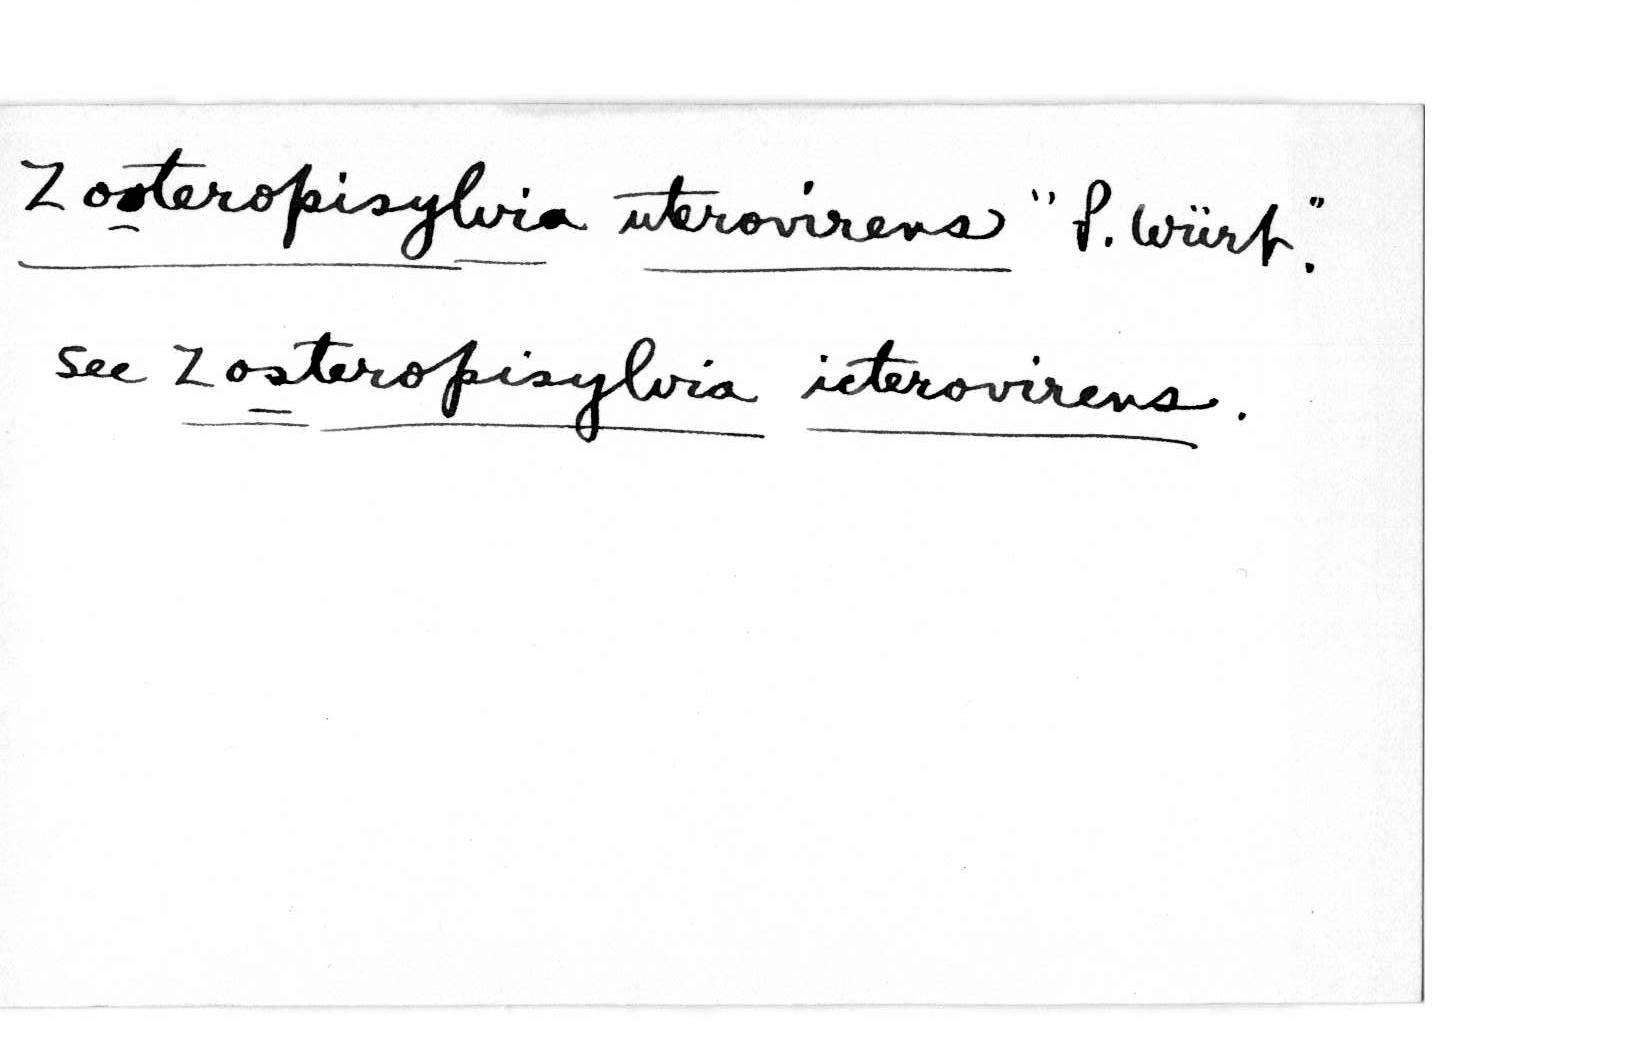 Zosteropisylvia uterovirens "P. Würt."
see Zosteropisylvia icterovirens.